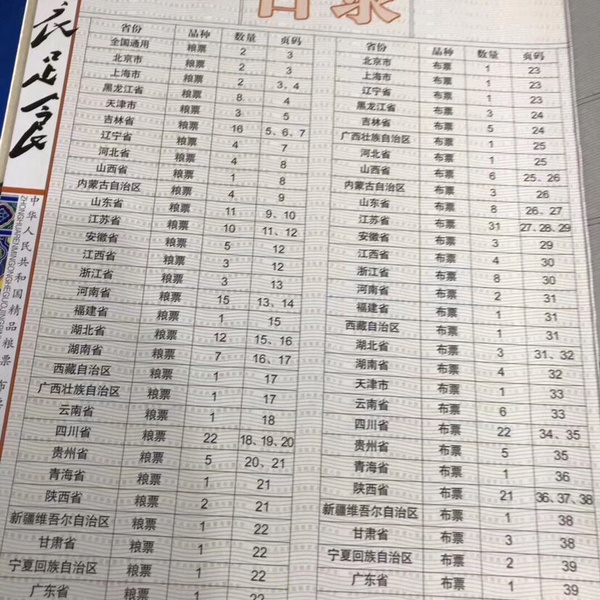 目录
丰衣足食
中华人民共和国精品粮票 布票
省份 品种 数量 页码
全国通用 粮票 2 3
北京市 粮票 2 3
上海市 粮票 2 3、4
黑龙江省 粮票 8 4
天津市 粮票 3 5
吉林省 粮票 16 5、6、7
辽宁省 粮票 4 7
河北省 粮票 4 8
山西省 粮票 1 8
内蒙古自治区 粮票 4 9
山东省 粮票 11 9、10
江苏省 粮票 10 11、12
安徽省 粮票 5 12
江西省 粮票 3 12
浙江省 粮票 3 13
河南省 粮票 15 13、14
福建省 粮票 1 15
湖北省 粮票 12 15、16
湖南省 粮票 7 16、17
西藏自治区 粮票 1 17
广西壮族自治区 粮票 1 17
云南省 粮票 1 18
四川省 粮票 22 18、19、20
贵州省 粮票 5 20、21
青海省 粮票 1 21
陕西省 粮票 2 21
新疆维吾尔自治区 粮票 1 22
甘肃省 粮票 1 22
宁夏回族自治区 粮票 1 22
广东省 粮票
省份 品种 数量 页码
北京市 布票 1 23
上海市 布票 1 23
辽宁省 布票 1 23
黑龙江省 布票 3 24
吉林省 布票 5 24
广西壮族自治区 布票 1 25
河北省 布票 1 25
山西省 布票 6 25、26
内蒙古自治区 布票 3 26
山东省 布票 8 26、27
江苏省 布票 31 27、28、29
安徽省 布票 3 29
江西省 布票 4 30
浙江省 布票 8 30
河南省 布票 2 31
福建省 布票 1 31
西藏自治区 布票 1 31
湖北省 布票 3 31、32
湖南省 布票 4 32
天津市 布票 1 33
云南省 布票 6 33
四川省 布票 22 34、35
贵州省 布票 5 35
青海省 布票 1 36
陕西省 布票 21 36、37、38
新疆维吾尔自治区 布票 1 38
甘肃省 布票 3 38
宁夏回族自治区 布票 2 39
广东省 布票 1 39